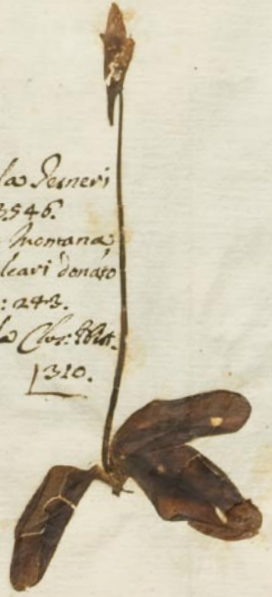 la Gesneri
3546.
montana,
leari donato
: 243.
la Clus: Hist.
310.